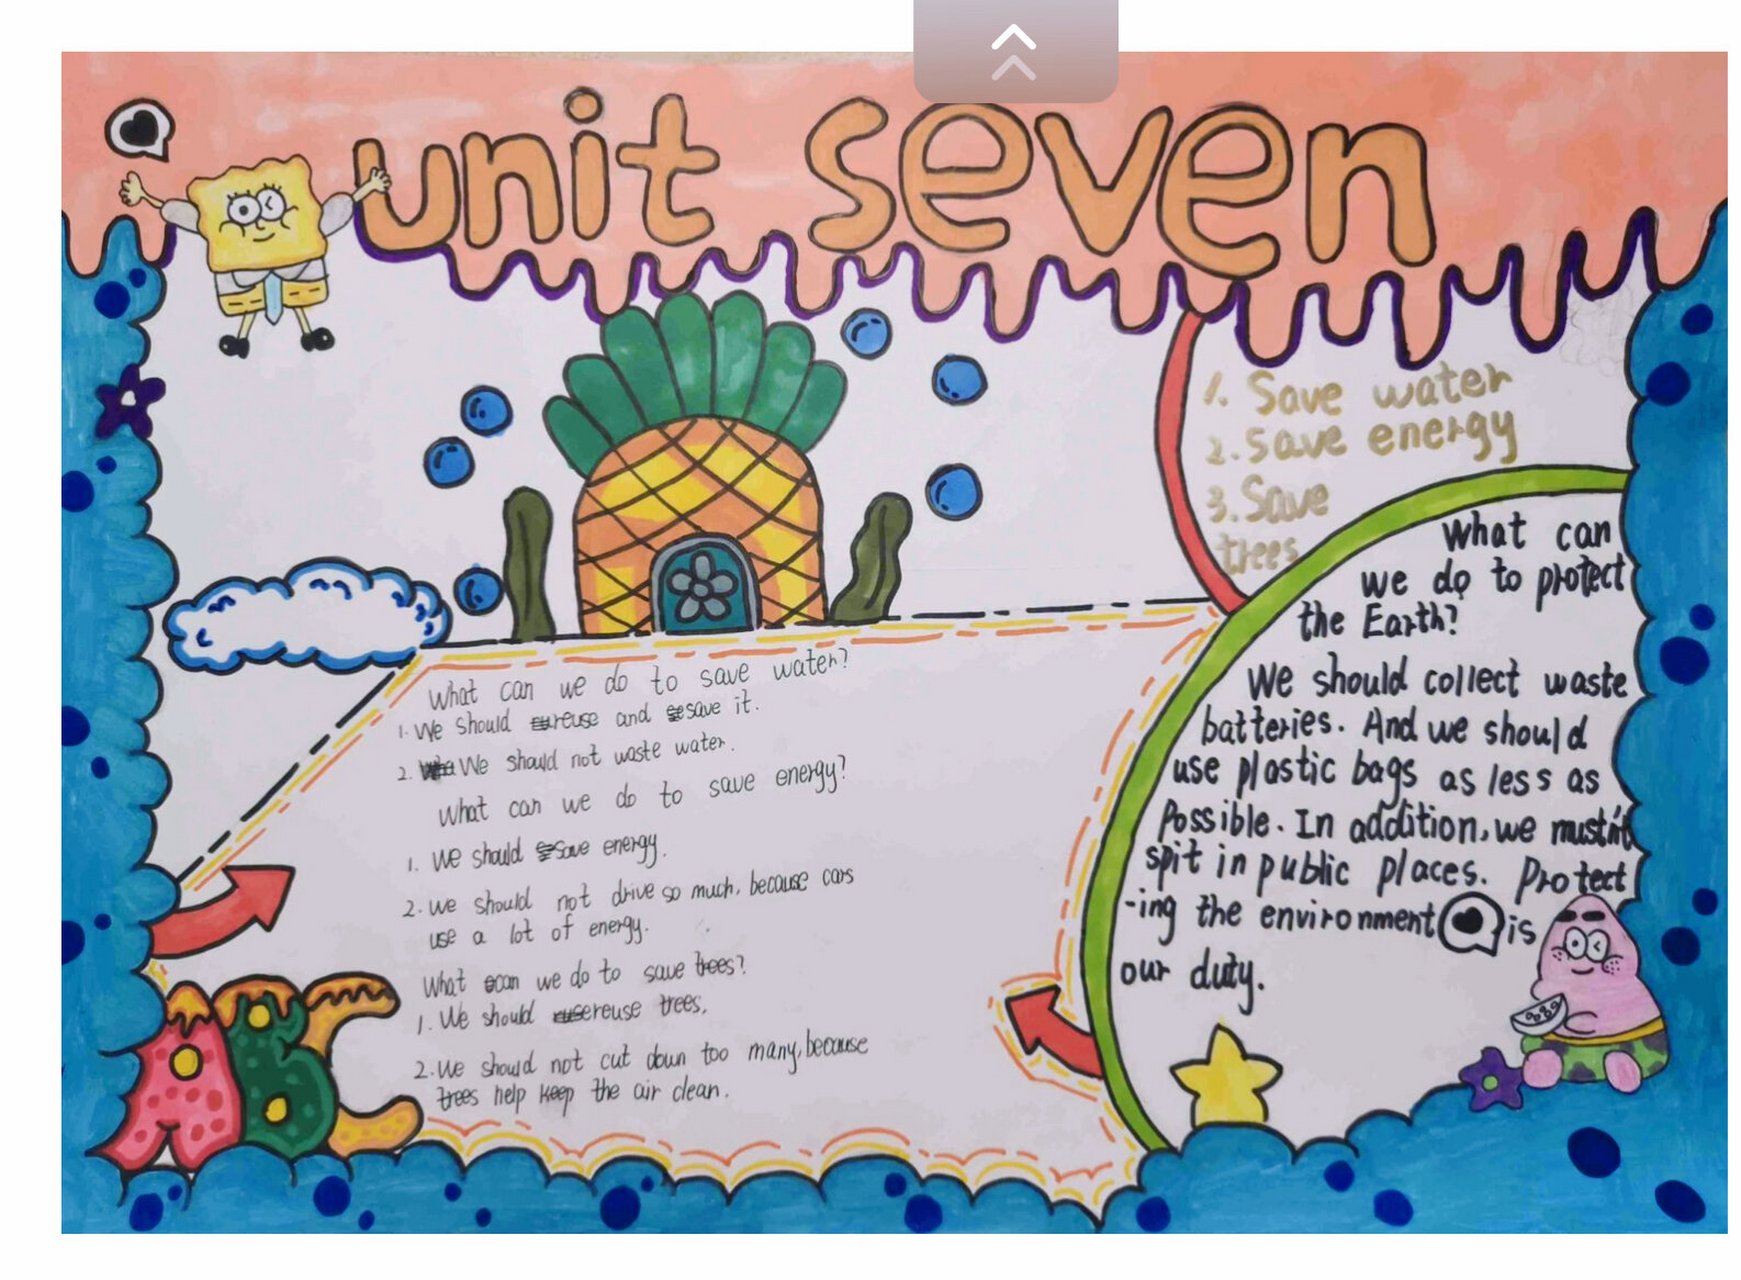 unit seven
1. Save water
2. Save energy
3. Save
trees
What can we do to save water?
1. We should reuse and save it.
2. We should not waste water.
What can we do to save energy?
1. We should save energy.
2. we should not drive so much, because cars
use a lot of energy.
What can we do to save trees?
1. We should reuse trees.
2. We should not cut down too many, because
trees help keep the air clean.
What can
we do to protect
the Earth?
We should collect waste
batteries. And we should
use plastic bags as less as
Possible. In addition, we mustn't
spit in public places. Protect
-ing the environment is
our duty.
ABC